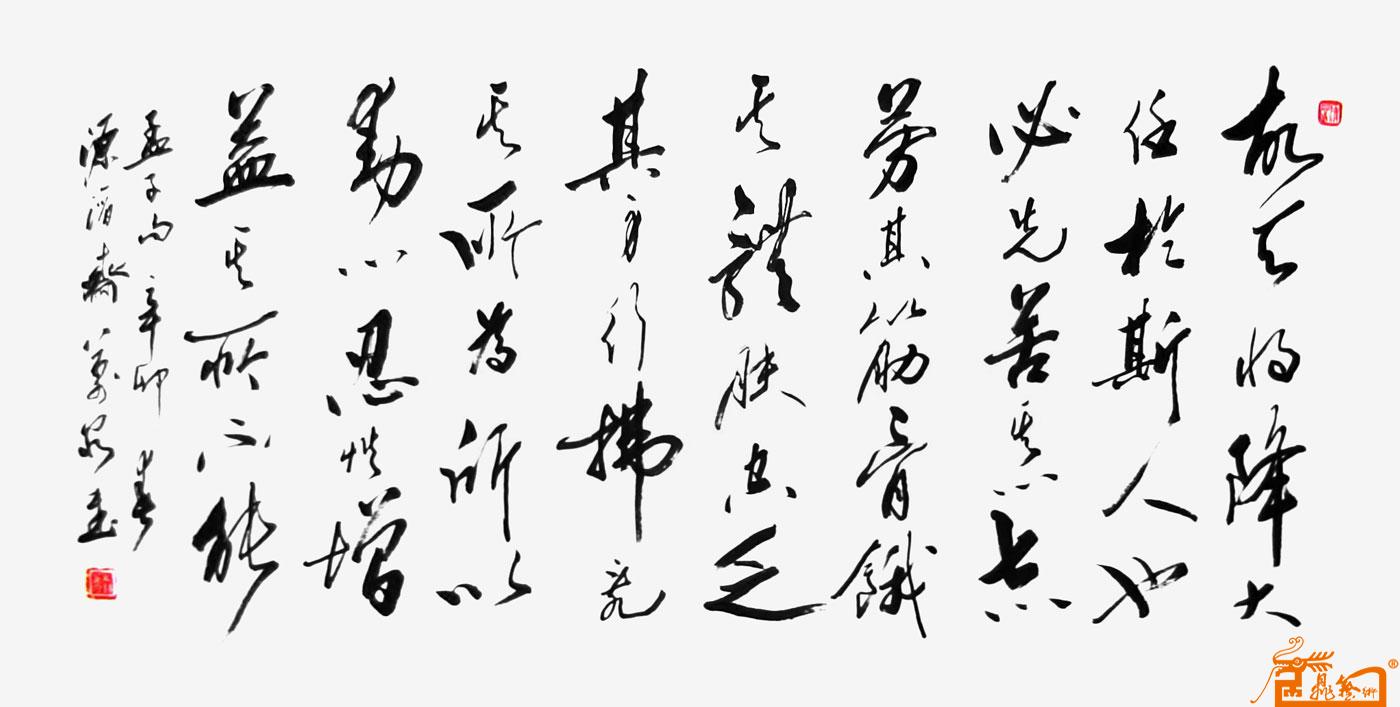 故天将降大
任於斯人也
必先苦其心志
劳其筋骨餓
其體肤空乏
其身行拂乱
其所为所以
動心忍性增
益其所不能
孟子句辛卯春
源齋